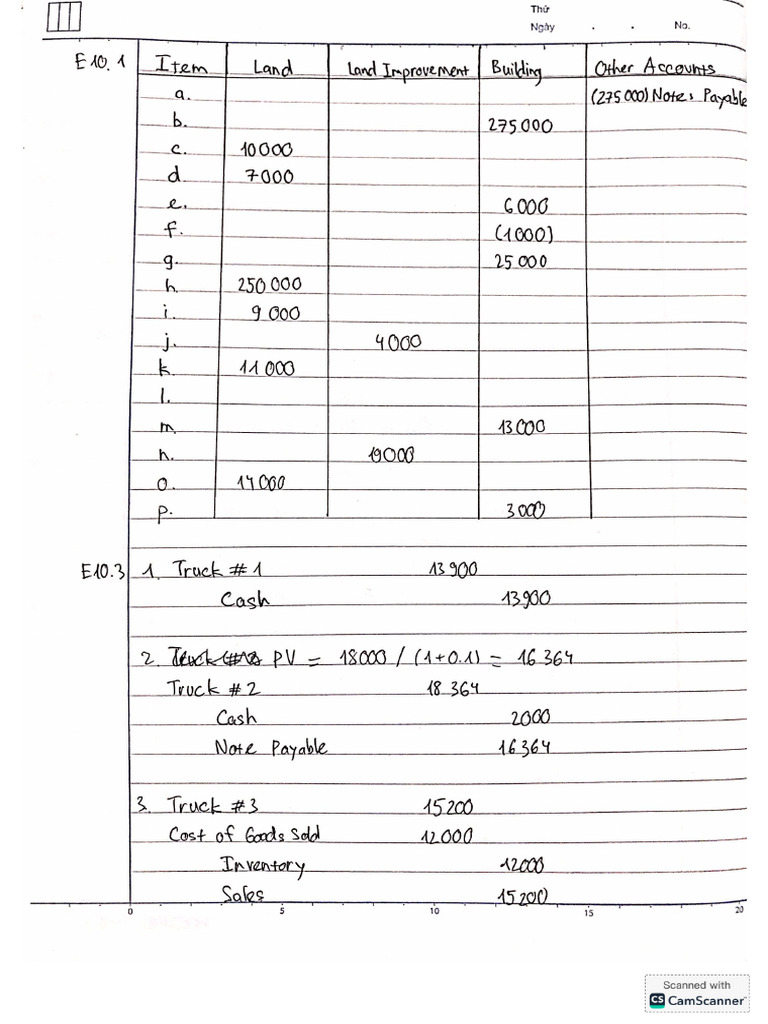 Thứ
Ngày . . No.
E10.1 Item Land Land Improvement Building Other Accounts
a. (275 000) Notes Payable
b. 275 000
c. 10 000
d. 7000
e. 6 000
f. (1 000)
g. 25 000
h. 250 000
i. 9 000
j. 4 000
k. 11 000
l.
m. 13 000
n. 19 000
o. 14 000
p. 3 000
E10.3 1. Truck #1 13 900
Cash 13 900
2. PV = 18000 / (1+0.1) = 16 364
Truck #2 18 364
Cash 2000
Note Payable 16 364
3. Truck #3 15 200
Cost of Goods Sold 12 000
Inventory 12 000
Sales 15 200
0 5 10 15 20
Scanned with
CS CamScanner